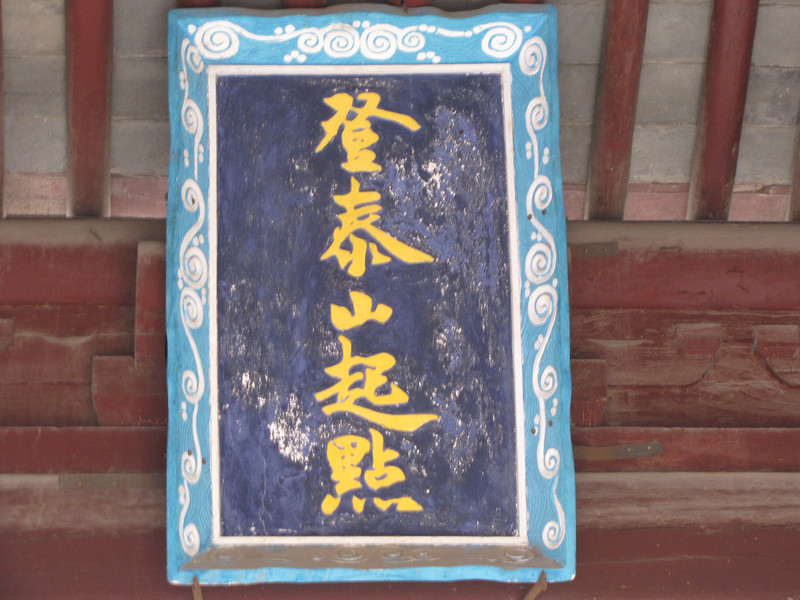 登泰山起點